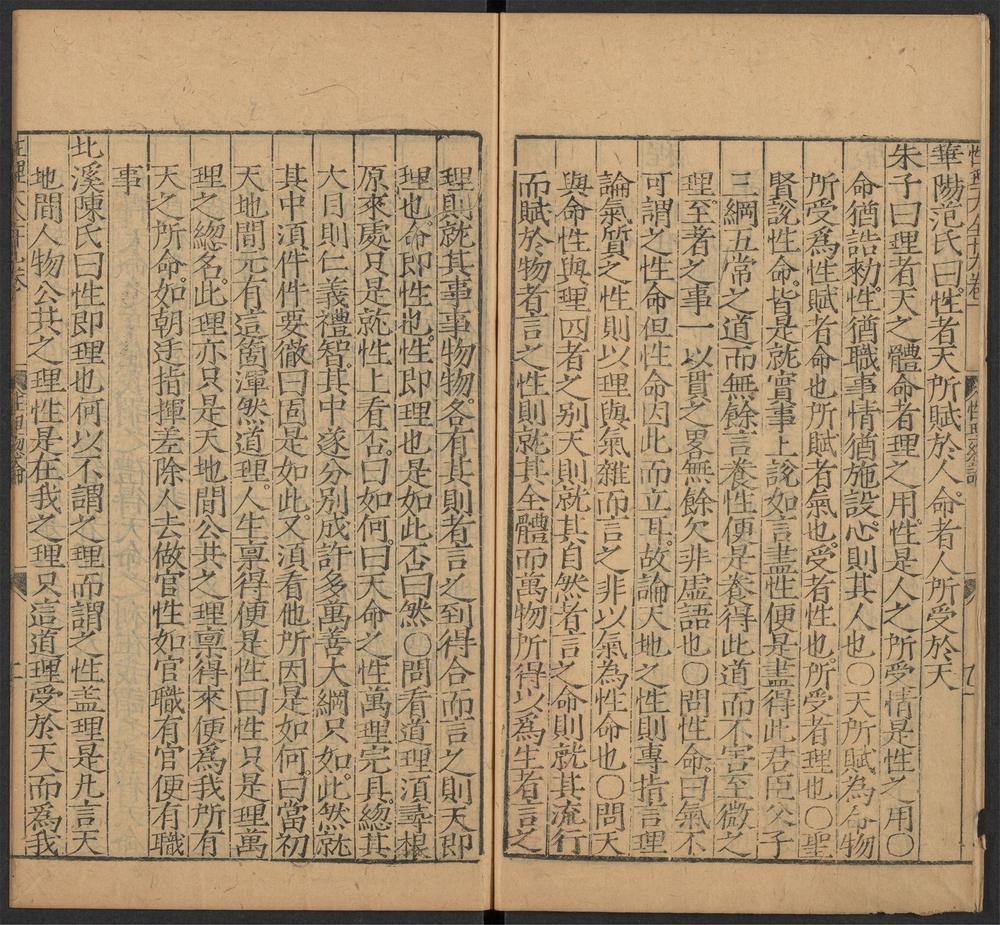 華陽范氏曰性者天所賦於人命者人所受於天
朱子曰理者天之體命者理之用性是人之所受情是性之用○
命猶誥勑性猶職事情猶施設心則其人也○天所賦為命物
所受爲性賦者命也所賦者氣也受者性也所受者理也○聖
賢說性命皆是就實事上說如言盡性便是盡得此君臣父子
三綱五常之道而無餘言養性便是養得此道而不害至微之
理至著之事一以貫之畧無餘欠非虛語也○問性命曰氣不
可謂之性命但性命因此而立耳故論天地之性則專指言理
論氣質之性則以理與氣雜而言之非以氣為性命也○問天
與命性與理四者之别天則就其自然者言之命則就其流行
而賦於物者言之性則就其全體而萬物所得以爲生者言之
理則就其事事物物各有其則者言之到得合而言之則天即
理也命即性也性即理也是如此否曰然○問看道理須尋根
原來處只是就性上看否曰如何曰天命之性萬理完具總其
大目則仁義禮智其中遂分别成許多萬善大綱只如此然就
其中須件件要徹曰固是如此又須看他所因是如何曰當初
天地間元有這箇渾然道理人生禀得便是性曰性只是理萬
理之總名此理亦只是天地間公共之理禀得來便爲我所有
天之所命如朝廷指揮差除人去做官性如官職有官便有職
事
北溪陳氏曰性即理也何以不謂之理而謂之性盖理是凡言天
地間人物公共之理性是在我之理只這道理受於天而爲我